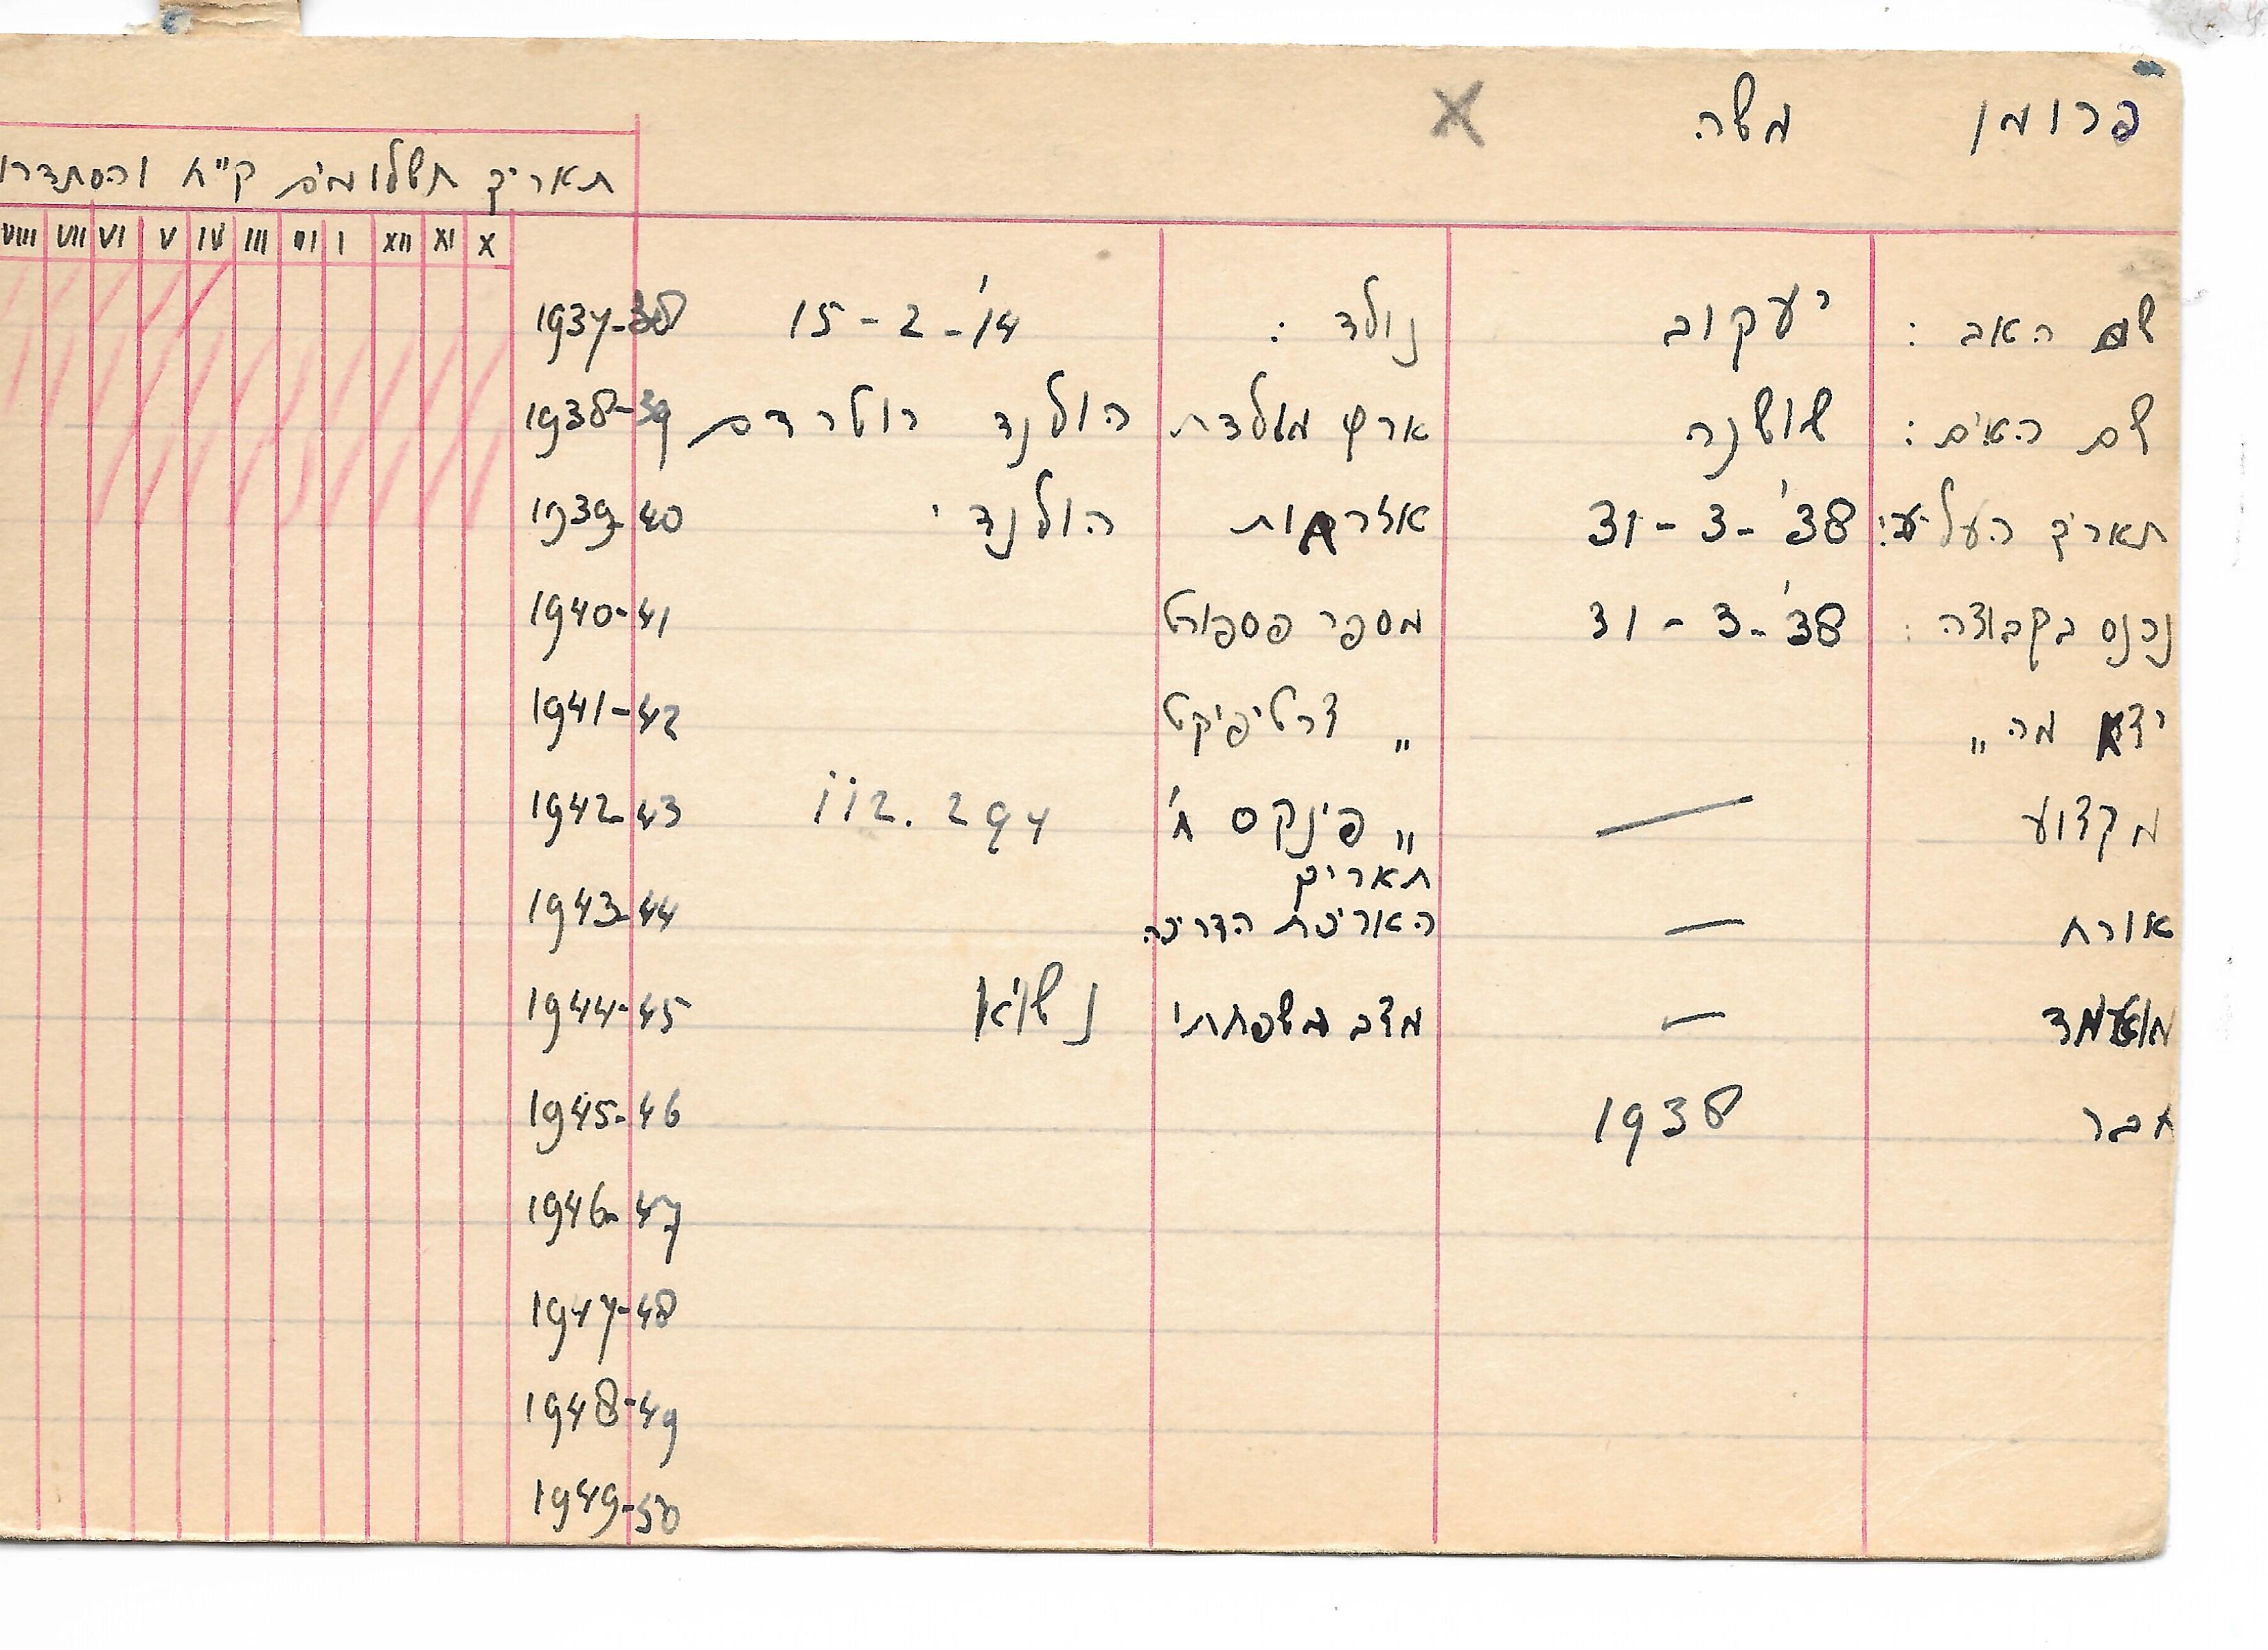 פרומן משה X
תאריך תשלומים ק"ח והסתדרו
VIII VII VI V IV III II I XII XI X
שם האב : יעקוב נולד : 15-2-'14 1937-38
שם האם : שושנה ארץ מולדת הולנד רוטרדם 1938-39
תאריך העליה: 31-3-'38 אזרחות הולנדי 1939-40
נכנס בקבוצה : 31-3-'38 מספר פספורט 1940-41
יצא מה " " צרטיפיקט 1941-42
מקצוע — " פינקס ח' 112.297 1942-43
תאריך
אורח — הארכת הדרכיה 1943-44
מועמד — מצב משפחתי נשוא 1944-45
חבר 1938 1945-46
1946-47
1947-48
1948-49
1949-50